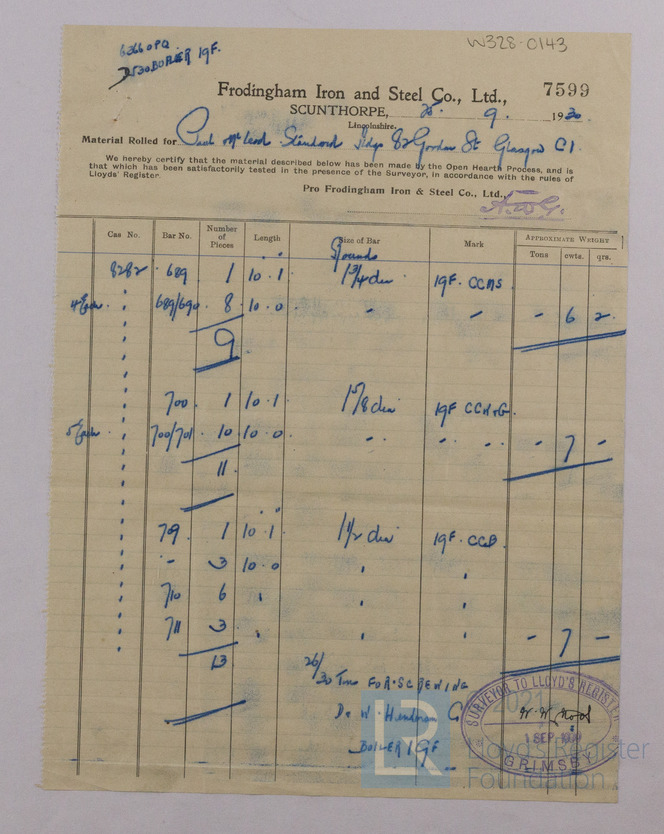 W328-0143
6366 OPQ
BOILER 19F.
Frodingham Iron and Steel Co., Ltd.,
7599
SCUNTHORPE, 9. 1930
Lincolnshire.
Material Rolled for Paul McLeod Standard Bdgs 82 Gordon St Glasgow C1.
We hereby certify that the material described below has been made by the Open Hearth Process, and is
that which has been satisfactorily tested in the presence of the Surveyor, in accordance with the rules of
Lloyds' Register
Pro Frodingham Iron & Steel Co., Ltd.,
Cas No. Bar No. Number of Pieces Length Size of Bar Mark Approximate Weight
Tons cwts. qrs.
Rounds
8282 689 1 10.1 1 3/4 dia 19F. CCMS
4 Each 689/690 8 10.0 " " - 6 2
9
700 1 10.1 1 5/8 dia 19F
5 Each 700/701 10 10.0 " " - 7 -
11
709 1 10.1 1 1/2 dia 19F. CCB
- 3 10.0 " "
710 6 " " "
711 3 " " " - 7 -
13
26/30 Tns FOR SCREWING
Dr W. Henderson
BOILER 19F
SURVEYOR TO LLOYD'S REGISTER
W. W. Wood
1 SEP 1930
GRIMSBY
LR
Lloyd's Register
Foundation